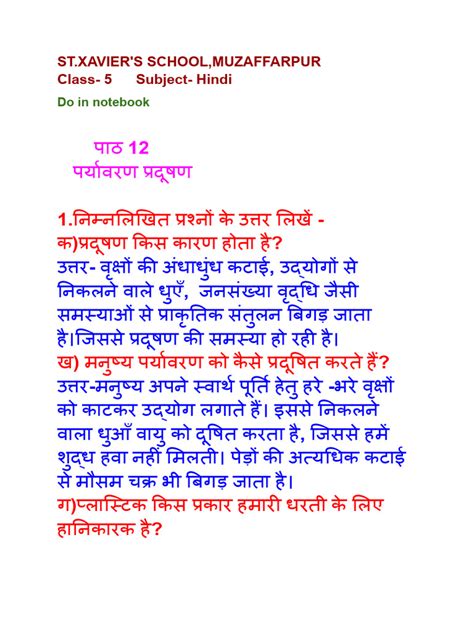 ST.XAVIER'S SCHOOL,MUZAFFARPUR
Class- 5 Subject- Hindi
Do in notebook
पाठ 12
पर्यावरण प्रदूषण
1.निम्नलिखित प्रश्नों के उत्तर लिखें -
क)प्रदूषण किस कारण होता है?
उत्तर- वृक्षों की अंधाधुंध कटाई, उद्योगों से
निकलने वाले धुएँ, जनसंख्या वृद्धि जैसी
समस्याओं से प्राकृतिक संतुलन बिगड़ जाता
है।जिससे प्रदूषण की समस्या हो रही है।
ख) मनुष्य पर्यावरण को कैसे प्रदूषित करते हैं?
उत्तर-मनुष्य अपने स्वार्थ पूर्ति हेतु हरे -भरे वृक्षों
को काटकर उद्योग लगाते हैं। इससे निकलने
वाला धुआँ वायु को दूषित करता है, जिससे हमें
शुद्ध हवा नहीं मिलती। पेड़ों की अत्यधिक कटाई
से मौसम चक्र भी बिगड़ जाता है।
ग)प्लास्टिक किस प्रकार हमारी धरती के लिए
हानिकारक है?